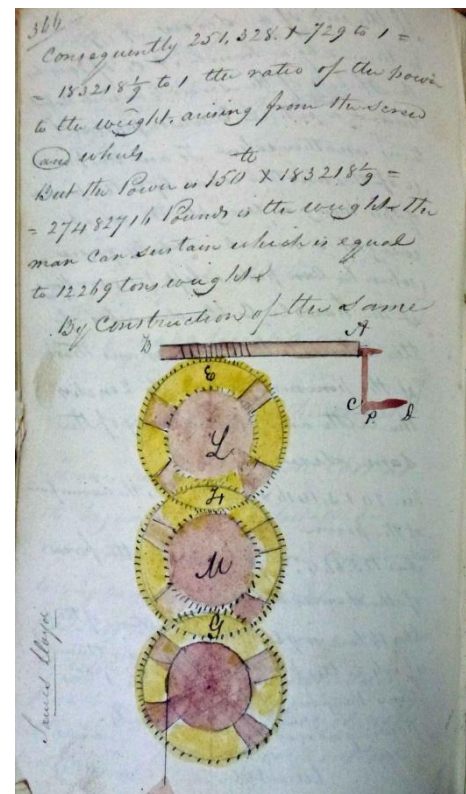 366
Consequently 251,328. X 729 to 1 =
= 183218 1/9 to 1 the ratio of the power
to the weight, arising from the screw
and wheels
But the Power is 150 lb X 183218 1/9 =
= 27482716 Pounds is the weight the
man can sustain which is equal
to 12269 tons weight
By Construction of the Same
B A
E
C P D
L
F
M
G
James Lloyd